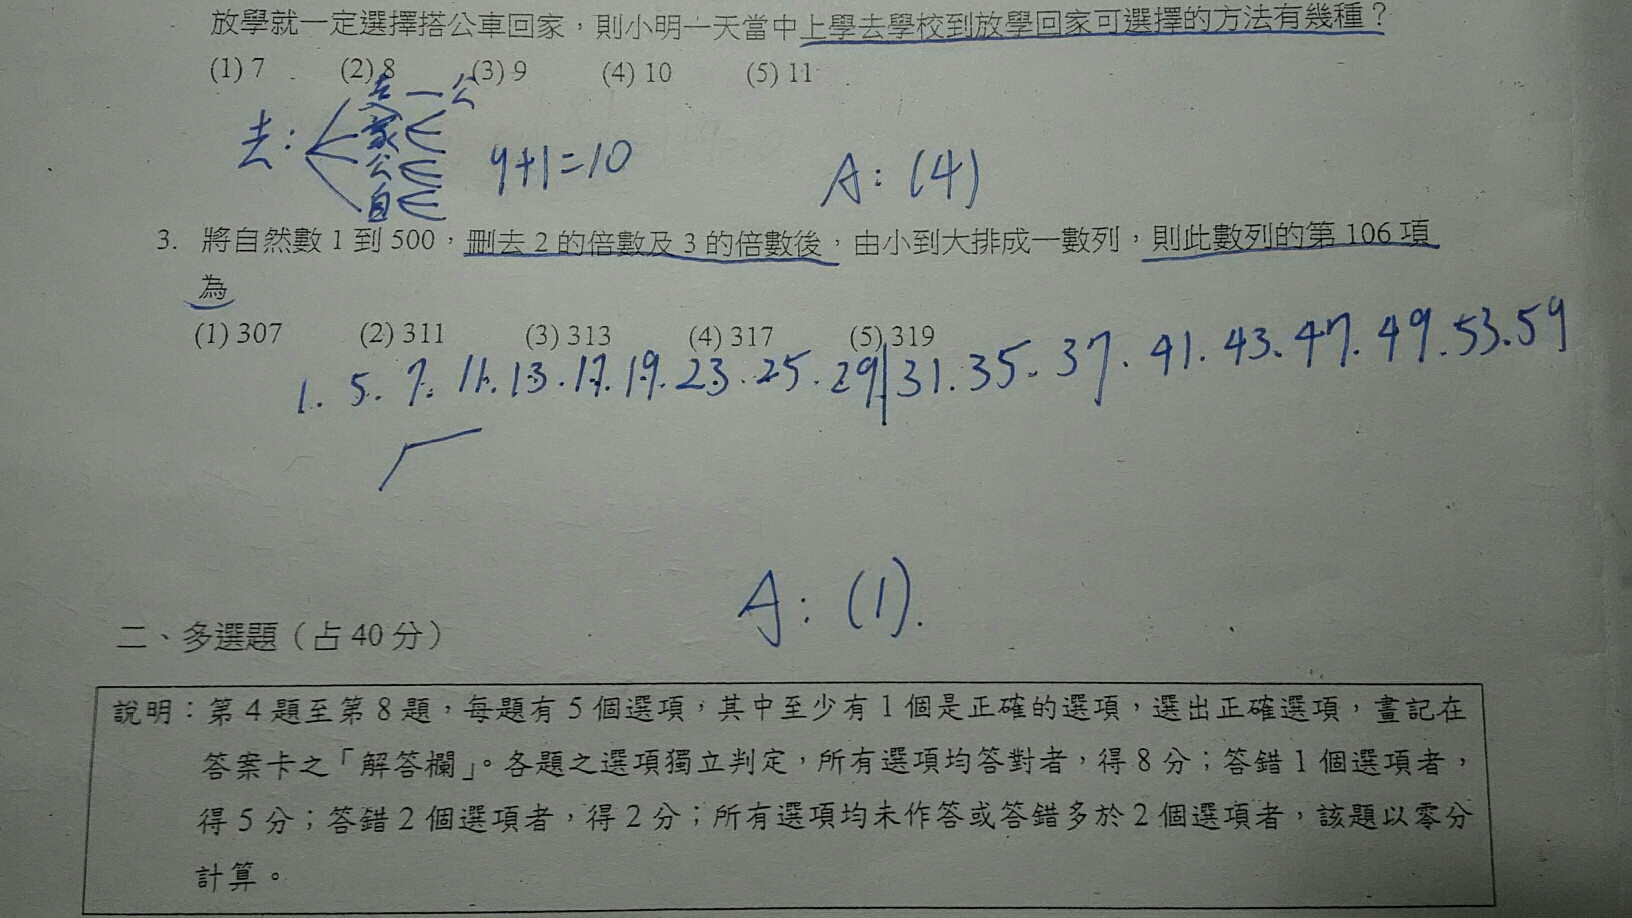 放學就一定選擇搭公車回家，則小明一天當中上學去學校到放學回家可選擇的方法有幾種？
(1) 7 (2) 8 (3) 9 (4) 10 (5) 11
去： 一公
家
公
自
9+1=10
A: (4)
3. 將自然數 1 到 500，刪去 2 的倍數及 3 的倍數後，由小到大排成一數列，則此數列的第 106 項
為
(1) 307 (2) 311 (3) 313 (4) 317 (5) 319
1. 5. 7. 11. 13. 17. 19. 23. 25. 29 31. 35. 37. 41. 43. 47. 49. 53. 59
A: (1).
二、多選題（占 40 分）
說明：第 4 題至第 8 題，每題有 5 個選項，其中至少有 1 個是正確的選項，選出正確選項，畫記在
答案卡之「解答欄」。各題之選項獨立判定，所有選項均答對者，得 8 分；答錯 1 個選項者，
得 5 分；答錯 2 個選項者，得 2 分；所有選項均未作答或答錯多於 2 個選項者，該題以零分
計算。